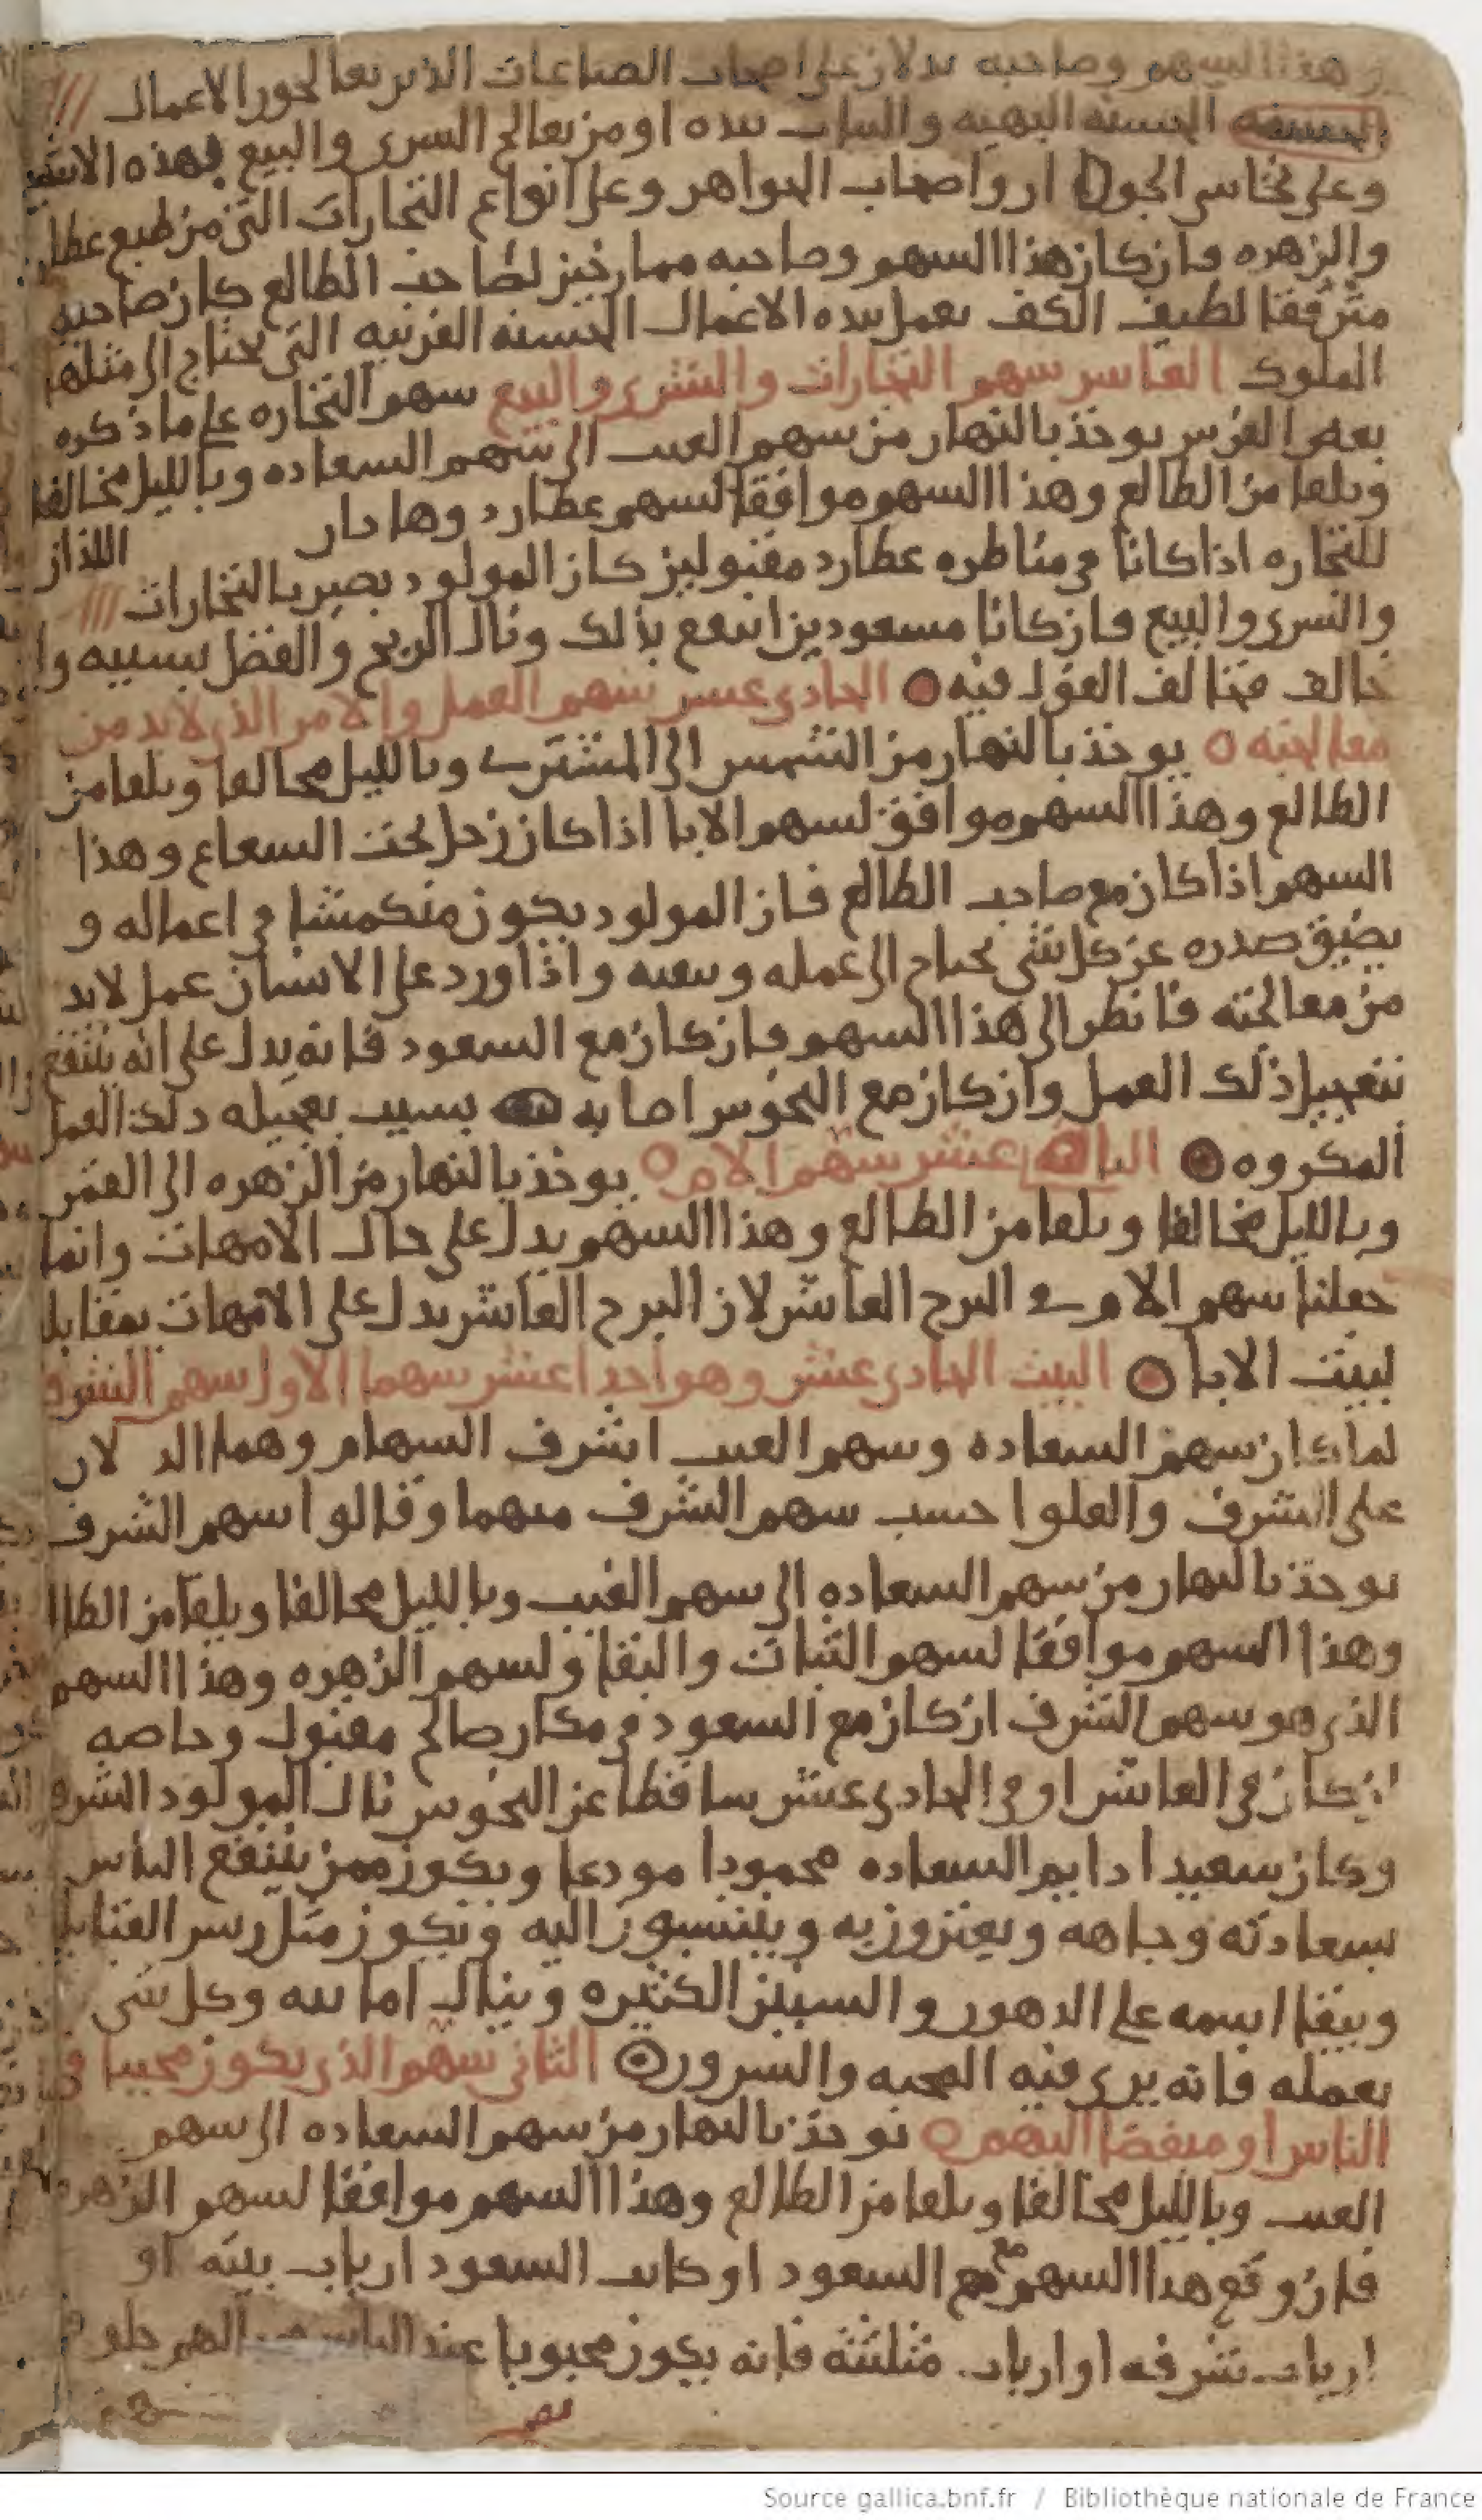 هذا السهم وصاحبه يدلان على اصحاب الصناعات الذين يعالجون الاعمال
الحسنه البهيه والبياب بيده او من يعالج السرى والبيع بهذه الاشيا
وعلى نخاسي الجوار واصحاب الجواهر وعلى انواع التجارات التي من طبع عطارد
والزهره فان كان هذا السهم وصاحبه ممازجين لصاحب الطالع كان صاحبه
مترفقا لطيف الكف يعمل بيده الاعمال الحسنه الغريبه التي يحتاج الى مثلها
الملوك العاشر سهم التجارات والشرى والبيع سهم التجاره على ما ذكره
بعض الفرس يوخذ بالنهار من سهم الغيب الى سهم السعاده وبالليل مخالفا
ويلقا من الطالع وهذا السهم موافقا لسهم عطارد وها دار اللذان
للتجاره اذا كانا في مناظره عطارد مقبولين كان المولود بصير بالتجارات
والشرى والبيع فان كانا مسعودين انتفع بذلك ونال الربح والفضل بسببه وان
خالف فخالف القول فيه الحادي عشر سهم العمل والامر الذي لابد من
معالجته يوخذ بالنهار من الشمس الى المشترى وبالليل مخالفا ويلقا من
الطالع وهذا السهم موافق لسهم الابا اذا كان زحل تحت السعاع وهذا
السهم اذا كان مع صاحب الطالع فان المولود يكون منكمشا في اعماله و
يضيق صدره عن كل شي يحتاج الى عمله ويتعبه واذا ورد على الانسان عمل لابد
من معالجته فانظر الى هذا السهم فان كان مع السعود فانه يدل على انه ينتفع
بتعجيل ذلك العمل وان كان مع النحوس اصابه بسبب تعجيله ذلك العمل
المكروه عشر سهم الام يوخذ بالنهار من الزهره الى القمر
وبالليل مخالفا ويلقا من الطالع وهذا السهم يدل على حال الامهات وانما
جعلنا سهم الام في البرج العاشر لان البرج العاشر يدل على الامهات بمقابله
لبيت الابا البيت الحادي عشر وهو احدا عشر سهما الاول سهم الشرف
لما كان سهم السعاده وسهم الغيب اشرف السهام وهما الد لان
على الشرف والعلو احسب سهم الشرف منهما وقالوا سهم الشرف
يوخذ بالنهار من سهم السعاده الى سهم الغيب وبالليل مخالفا ويلقا من الطالع
وهذا السهم موافقا لسهم الثبات والبقا ولسهم الزهره وهذا السهم
الذي هو سهم الشرف ان كان مع السعود في مكان صالح مقبول وخاصه
ان كان في العاشر او في الحادي عشر ساقطا عن النحوس نال المولود الشرف
وكان سعيدا دايم السعاده محمودا مودعا ويكون ممن ينتفع الناس
بسعادته وجاهه ويعتزون به وينتسبون اليه ويكون مثل ريس القبايل
ويبقا اسمه على الدهور والسنين الكثيره وينال امانيه وكل شي
يعمله فانه يرى فيه المحبه والسرور الثاني سهم الذي يكون محببا في
الناس او مبغضا اليهم يوخذ بالنهار من سهم السعاده الى سهم
الغيب وبالليل مخالفا ويلقا من الطالع وهذا السهم موافقا لسهم الزهره
فان وقع هذا السهم مع السعود او كانت السعود ارباب بيته او
ارباب شرفه او ارباب مثلثته فانه يكون محبوبا عند الناس
Source gallica.bnf.fr / Bibliothèque nationale de France